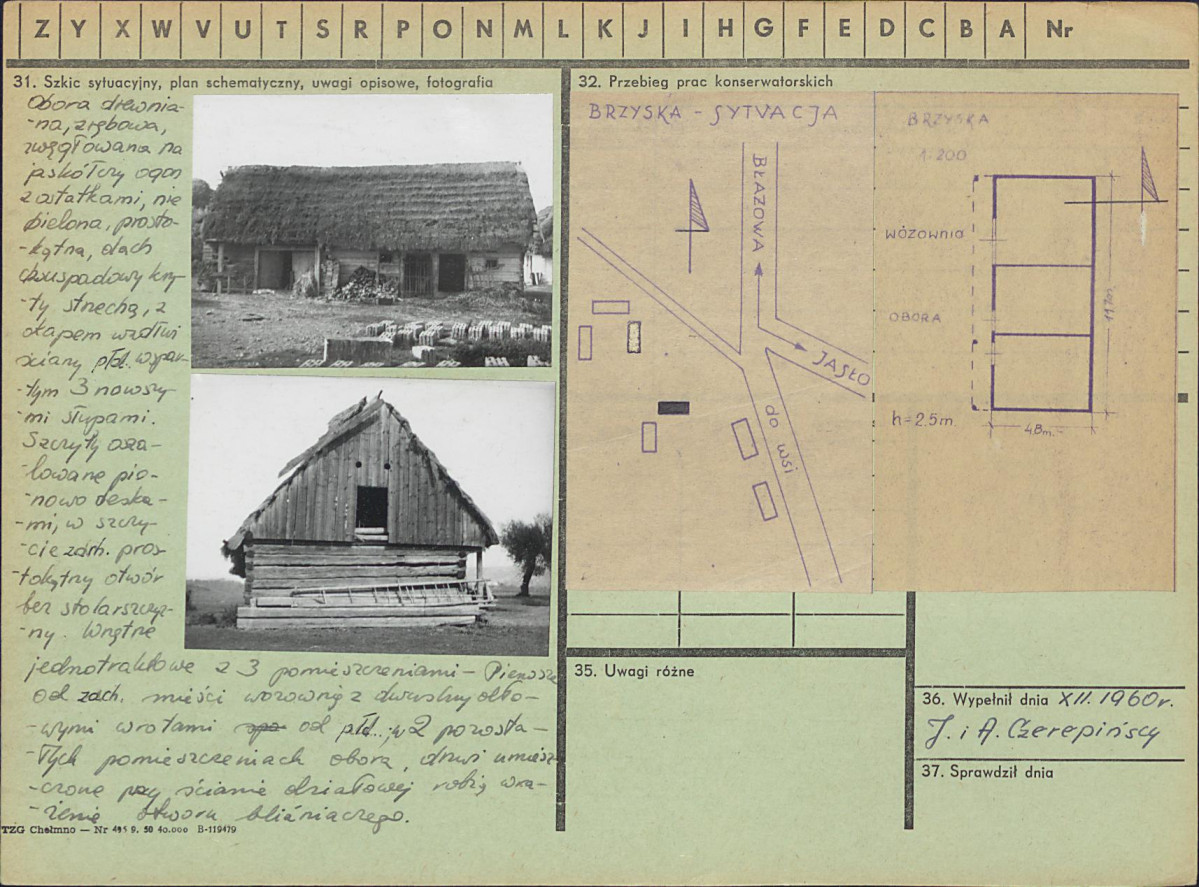 Z Y X W V U T S R P O N M L K J I H G F E D C B A Nr
31. Szkic sytuacyjny, plan schematyczny, uwagi opisowe, fotografia
Obora drewnia-
-na, zrębowa,
zwęgłowana na
jaskółczy ogon
z ostatkami, nie
bielona, prosto-
-kątna, dach
dwuspadowy kry-
-ty strzechą, z
okapem wzdłuż
ściany płd. wspar-
-tym 3 nowszy-
-mi słupami.
Szczyty osza-
-lowane pio-
-nowo deska-
-mi, w szczy-
-cie zach. pros-
-tokątny otwór
bez stolarszczyz-
-ny. Wnętrze
jednotraktowe z 3 pomieszczeniami - Pierwsze
od zach. mieści wozownię z dwuskrzydło-
-wymi wrotami od płd., w 2 pozosta-
-łych pomieszczeniach obora, drzwi umiesz
-czone przy ścianie działowej robią wra-
-żenie otworu bliźniaczego.
TZG Chełmno — Nr 495 9. 50 40.000 B-119479
32. Przebieg prac konserwatorskich
BRZYSKA - SYTUACJA
BŁAZOWA
JASŁO
do wsi
BRZYSKA
1:200
WÓZOWNIA
OBORA
h=2.5m
4.8m.
11.70m.
35. Uwagi różne
36. Wypełnił dnia XII. 1960r.
J. i A. Czerepińscy
37. Sprawdził dnia